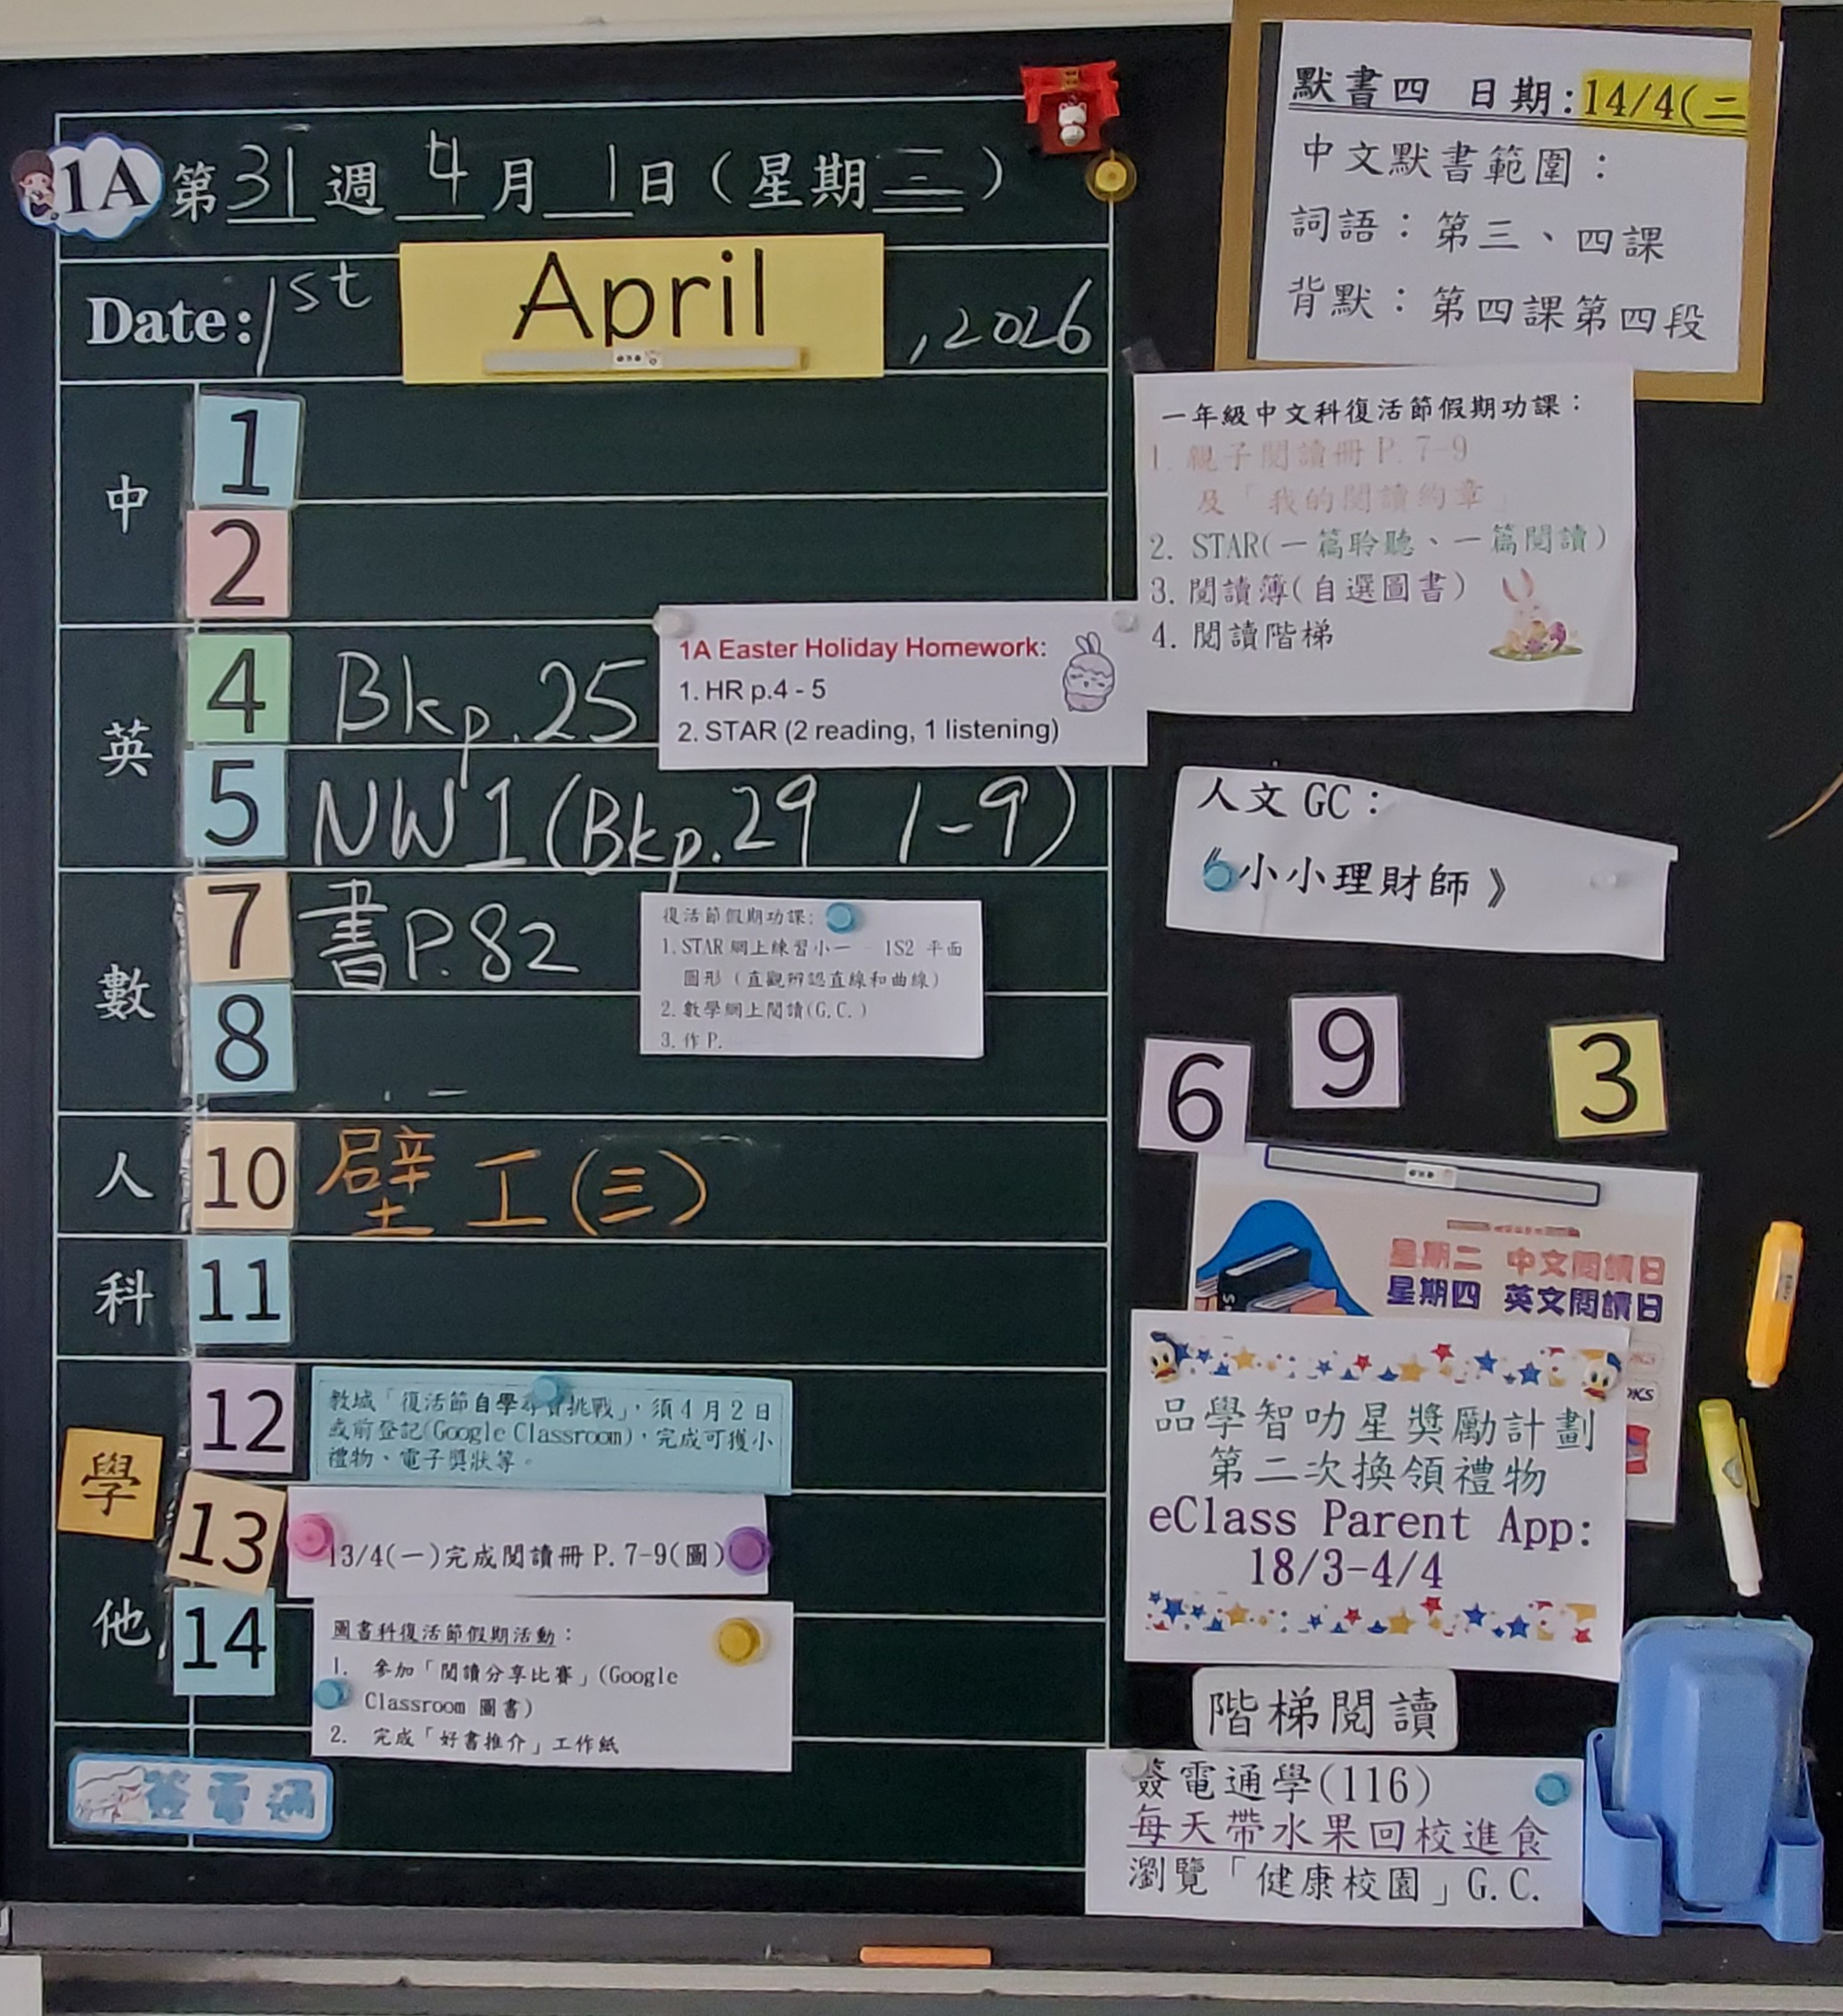 1A 第31週 4月1日（星期三）
Date: 1st April, 2026
中
1
2
英
4 Bkp.25
1A Easter Holiday Homework:
1. HR p.4 - 5
2. STAR (2 reading, 1 listening)
5 NW1 (Bkp.29 1-9)
數
7 書P.82
復活節假期功課:
1. STAR 網上練習小一 - 1S2 平面
圖形（直觀辨認直線和曲線）
2. 數學網上閱讀(G.C.)
3. 作 P.
8
人
10 壁工(三)
科
11
學
12
教城「復活節自學 挑戰」，須4月2日
或前登記(Google Classroom)，完成可獲小
禮物、電子獎狀等。
13
13/4(一)完成閱讀冊 P.7-9(圖)
他
14
圖書科復活節假期活動：
1. 參加「閱讀分享比賽」(Google
Classroom 圖書)
2. 完成「好書推介」工作紙
簽電通
默書四 日期:14/4(二
中文默書範圍：
詞語：第三、四課
背默：第四課第四段
一年級中文科復活節假期功課：
1. 親子閱讀冊 P.7-9
及「我的閱讀約章」
2. STAR(一篇聆聽、一篇閱讀)
3. 閱讀簿(自選圖書)
4. 閱讀階梯
人文 GC：
《小小理財師》
6
9
3
星期二 中文閱讀日
星期四 英文閱讀日
品學智叻星獎勵計劃
第二次換領禮物
eClass Parent App:
18/3-4/4
階梯閱讀
簽電通學(116)
每天帶水果回校進食
瀏覽「健康校園」G.C.